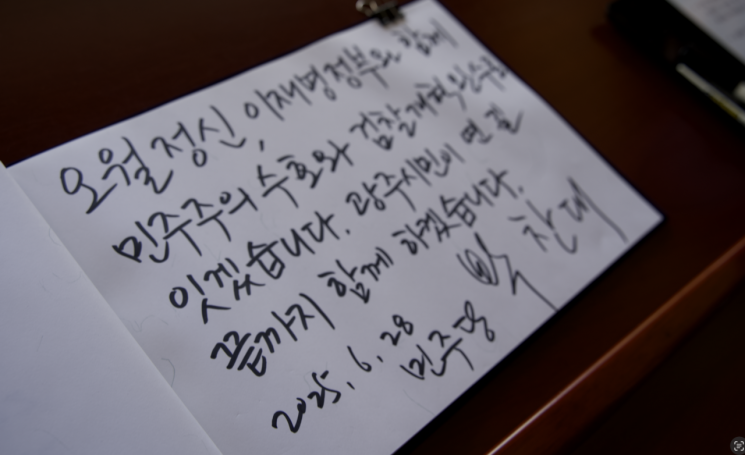 오월 정신, 이재명정부와 함께
민주주의 수호와 검찰개혁 완수로
잇겠습니다. 광주시민이 연 길
끝까지 함께 하겠습니다.
2025. 6. 28 민주당 박찬대